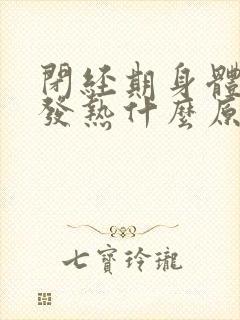 閉經期身體
發熱什麼原
七寶玲瓏